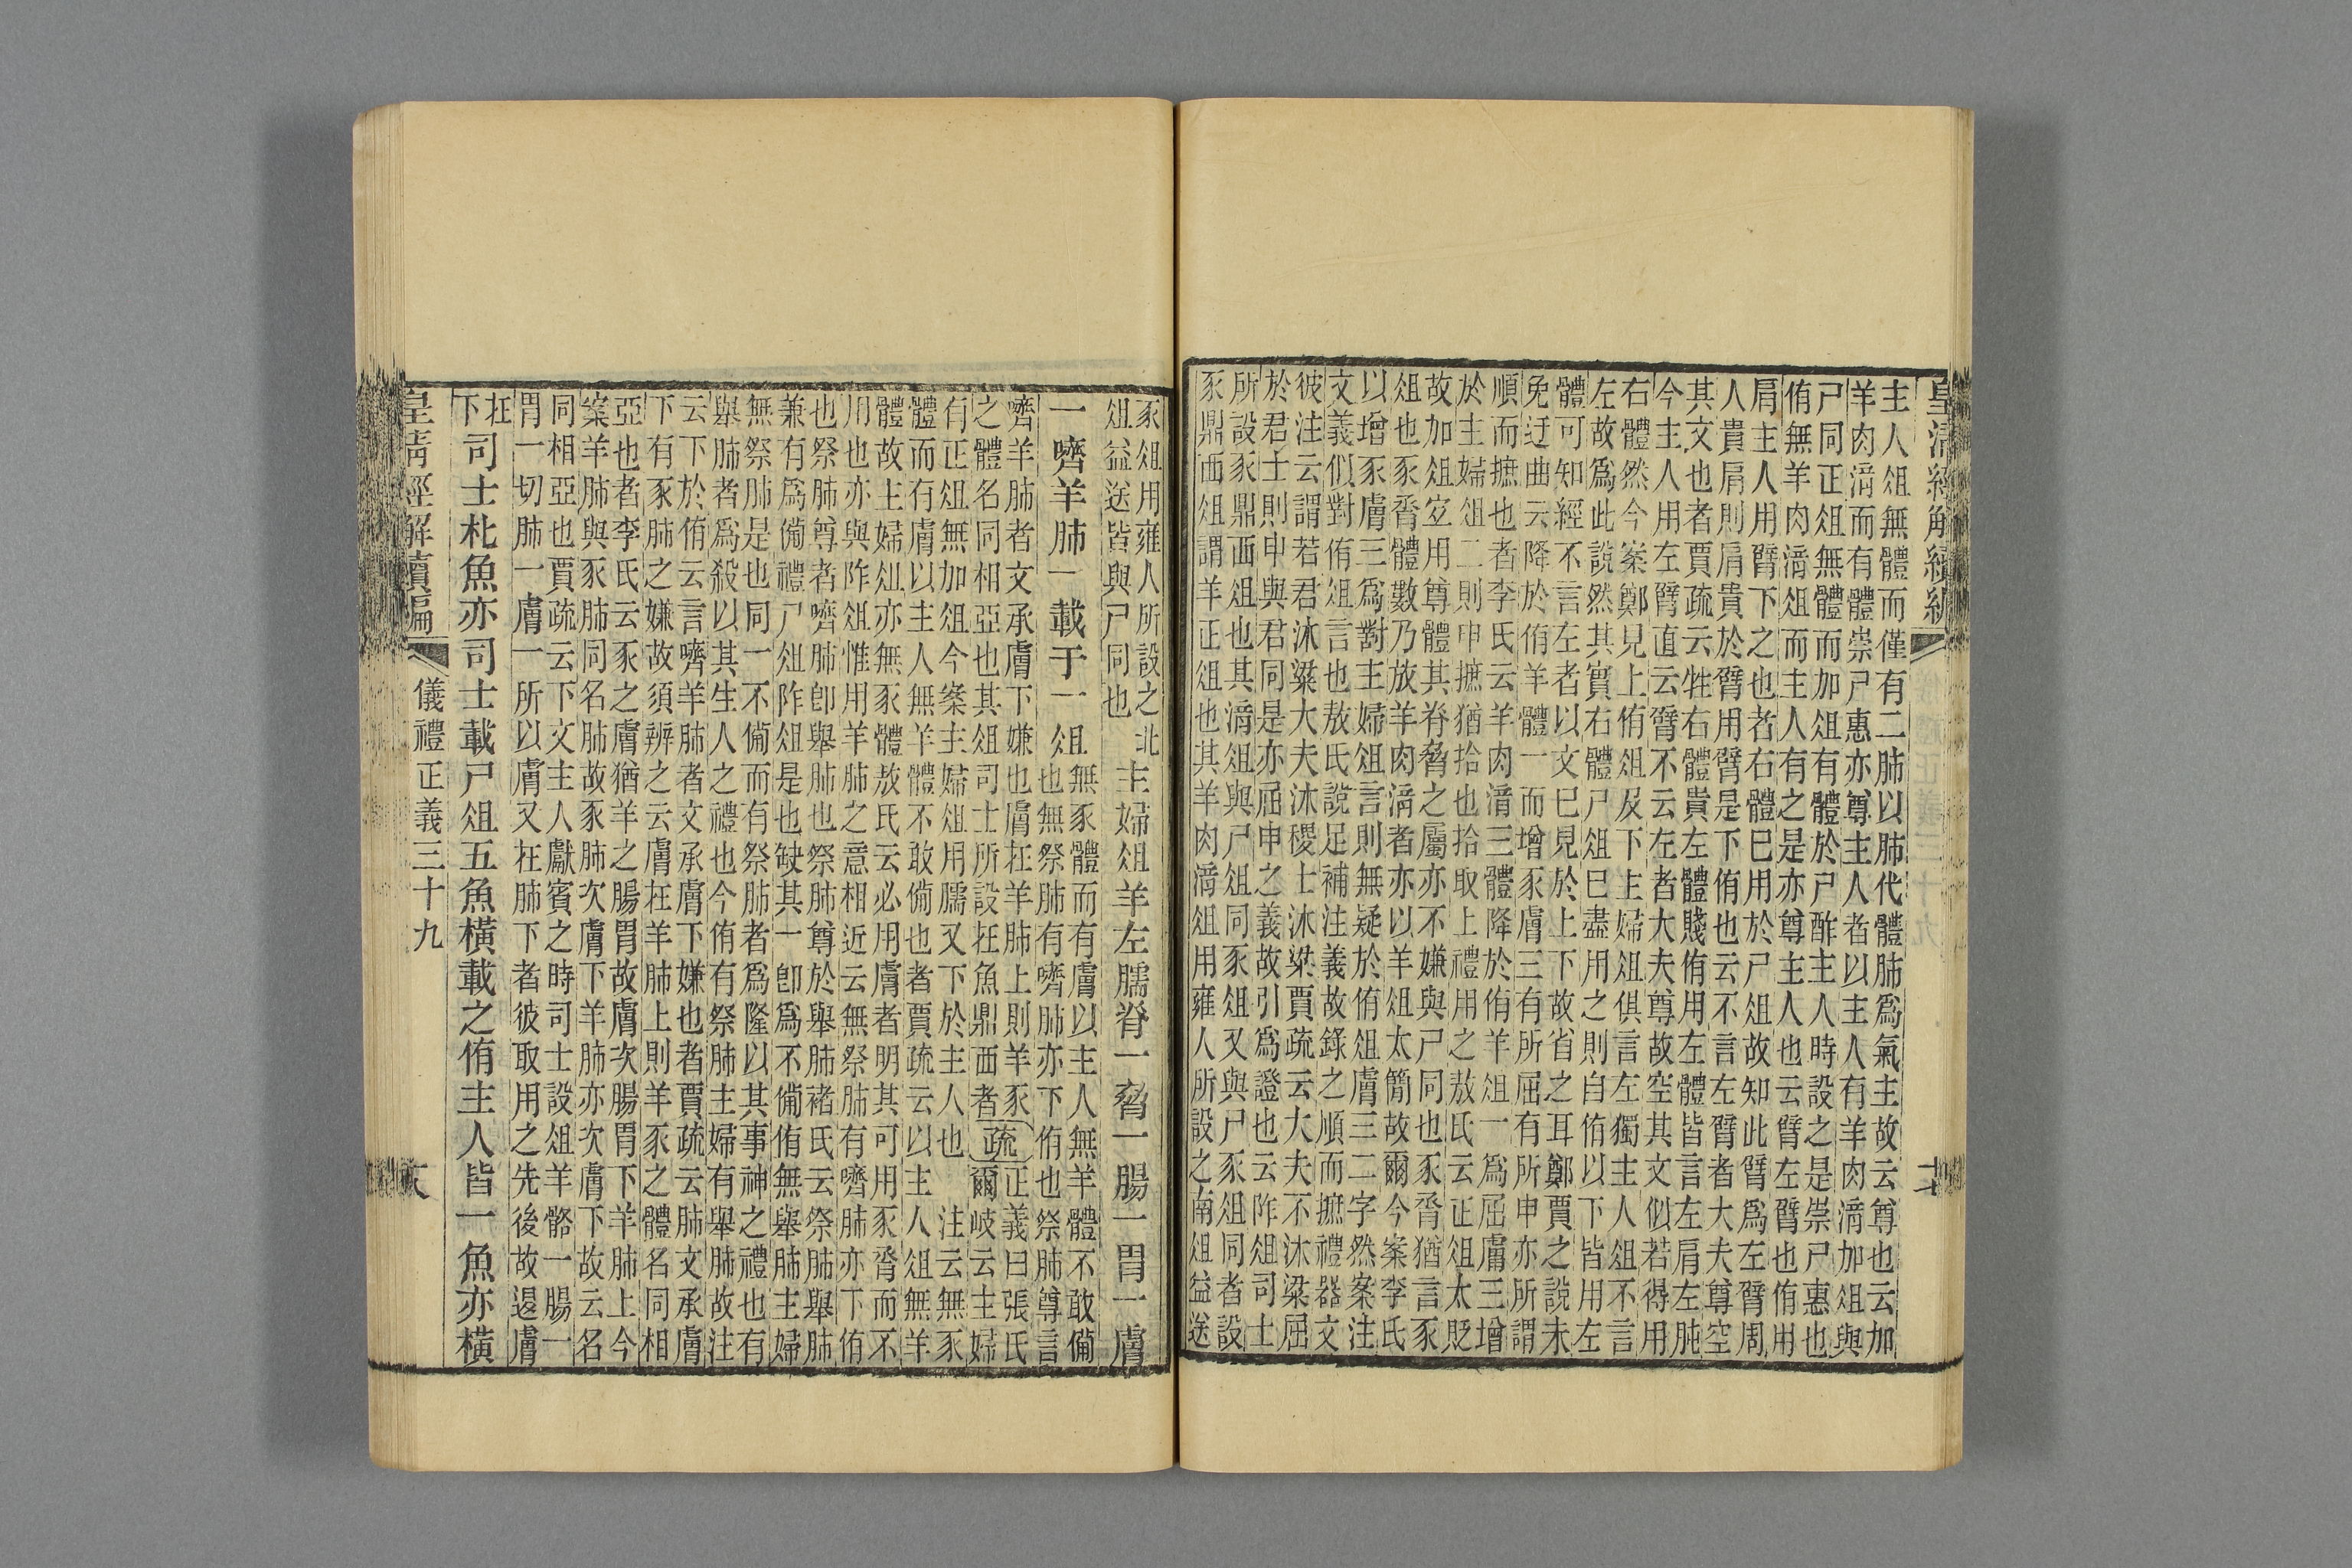 皇清經解續編
主人俎無體而僅有二肺以肺代體肺爲氣主故云尊也云加
羊肉湇而有體崇尸惠亦尊主人者以主人有羊肉湇加俎與
尸同正俎無體而加俎有體於尸酢主人時設之是崇尸惠也
侑無羊肉湇俎而主人有之是亦尊主人也云臂左臂也侑用
肩主人用臂下之也者右體巳用於尸俎故知此臂爲左臂周
人貴肩則肩貴於臂用臂是下侑也云不言左臂者大夫尊空
其文也者賈疏云牲右體貴左體賤侑用左體皆言左肩左肫
今主人用左臂直云臂不云左者大夫尊故空其文似若得用
右體然今案鄭見上侑俎及下主婦俎俱言左獨主人俎不言
左故爲此說然其實右體尸俎巳盡用之則自侑以下皆用左
體可知經不言左者以文巳見於上下故省之耳鄭賈之說未
免迂曲云降於侑羊體一而增豕膚三有所屈有所申亦所謂
順而摭也者李氏云羊肉湇三體降於侑羊俎一爲屈膚三增
於主婦俎二則申摭猶拾也拾取上禮用之敖氏云正俎太貶
故加俎宜用尊體其脊脅之屬亦不嫌與尸同也豕脀猶言豕
俎也豕脀體數乃放羊肉湇者亦以羊俎太簡故爾今案李氏
以增豕膚三爲對主婦俎言則無疑於侑俎膚三二字然案注
文義似對侑俎言也敖氏說足補注義故錄之順而摭禮器文
彼注云謂若君沐粱大夫沐稷士沐粱賈疏云大夫不沐粱屈
於君士則申與君同是亦屈申之義故引爲證也云阼俎司士
所設豕鼎西俎也其湇俎與尸俎同豕俎又與尸豕俎同者設
豕鼎西俎謂羊正俎也其羊肉湇俎用雍人所設之南俎益送
豕俎用雍人所設之北
俎益送皆與尸同也
主婦俎羊左臑脊一脅一腸一胃一膚
一嚌羊肺一載于一俎
無豕體而有膚以主人無羊體不敢備
也無祭肺有嚌肺亦下侑也祭肺尊言
嚌羊肺者文承膚下嫌也膚在羊肺上則羊豕
之體名同相亞也其俎司士所設在魚鼎西者
疏
正義曰張氏
爾岐云主婦
有正俎無加俎今案主婦俎用臑又下於主人也 注云無豕
體而有膚以主人無羊體不敢備也者賈疏云以主人俎無羊
體故主婦俎亦無豕體敖氏云必用膚者明其可用豕脀而不
用也亦與阼俎惟用羊肺之意相近云無祭肺有嚌肺亦下侑
也祭肺尊者嚌肺卽舉肺也祭肺尊於舉肺褚氏云祭肺舉肺
兼有爲備禮尸俎阼俎是也缺其一卽爲不備侑無舉肺主婦
無祭肺是也同一不備而有祭肺者爲隆以其事神之禮也有
舉肺者爲殺以其生人之禮也今侑有祭肺主婦有舉肺故注
云下於侑云言嚌羊肺者文承膚下嫌也者賈疏云肺文承膚
下有豕肺之嫌故須辨之云膚在羊肺上則羊豕之體名同相
亞也者李氏云豕之膚猶羊之腸胃故膚次腸胃下羊肺上今
案羊肺與豕肺同名肺故豕肺次膚下羊肺亦次膚下故云名
同相亞也賈疏云下文主人獻賓之時司士設俎羊骼一腸一
胃一切肺一膚一所以膚又在肺下者彼取用之先後故退膚
在
下
司士朼魚亦司士載尸俎五魚橫載之侑主人皆一魚亦橫
皇清經解續編
儀禮正義三十九